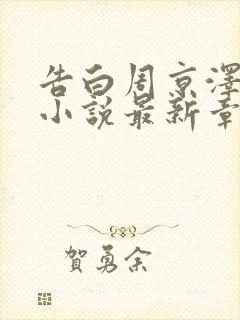 告白周京澤
小說最新章
賀勇余